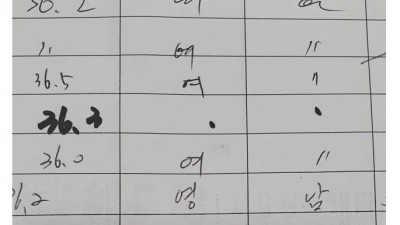 36.2 여
〃 여 〃
36.5 여 〃
36.3 . .
36.0 여 〃
영 남